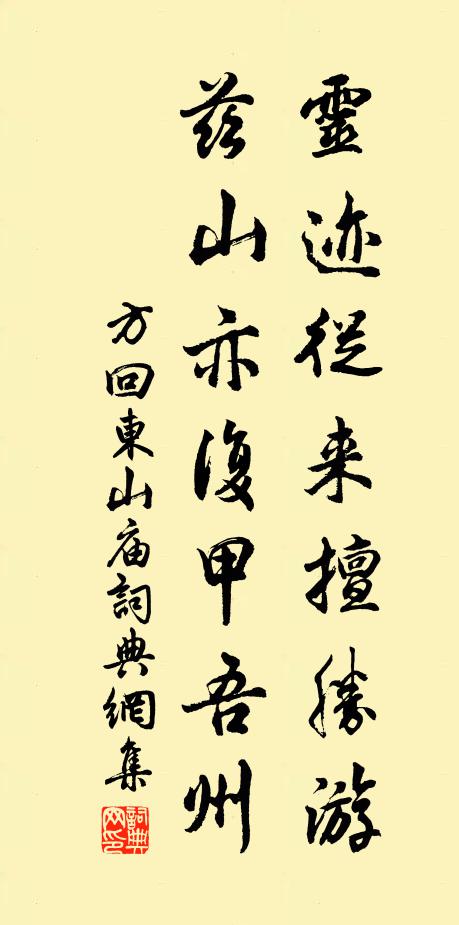 靈迹從来擅勝游
茲山亦復甲吾州
方回東山庙詞典網集
詞典网印